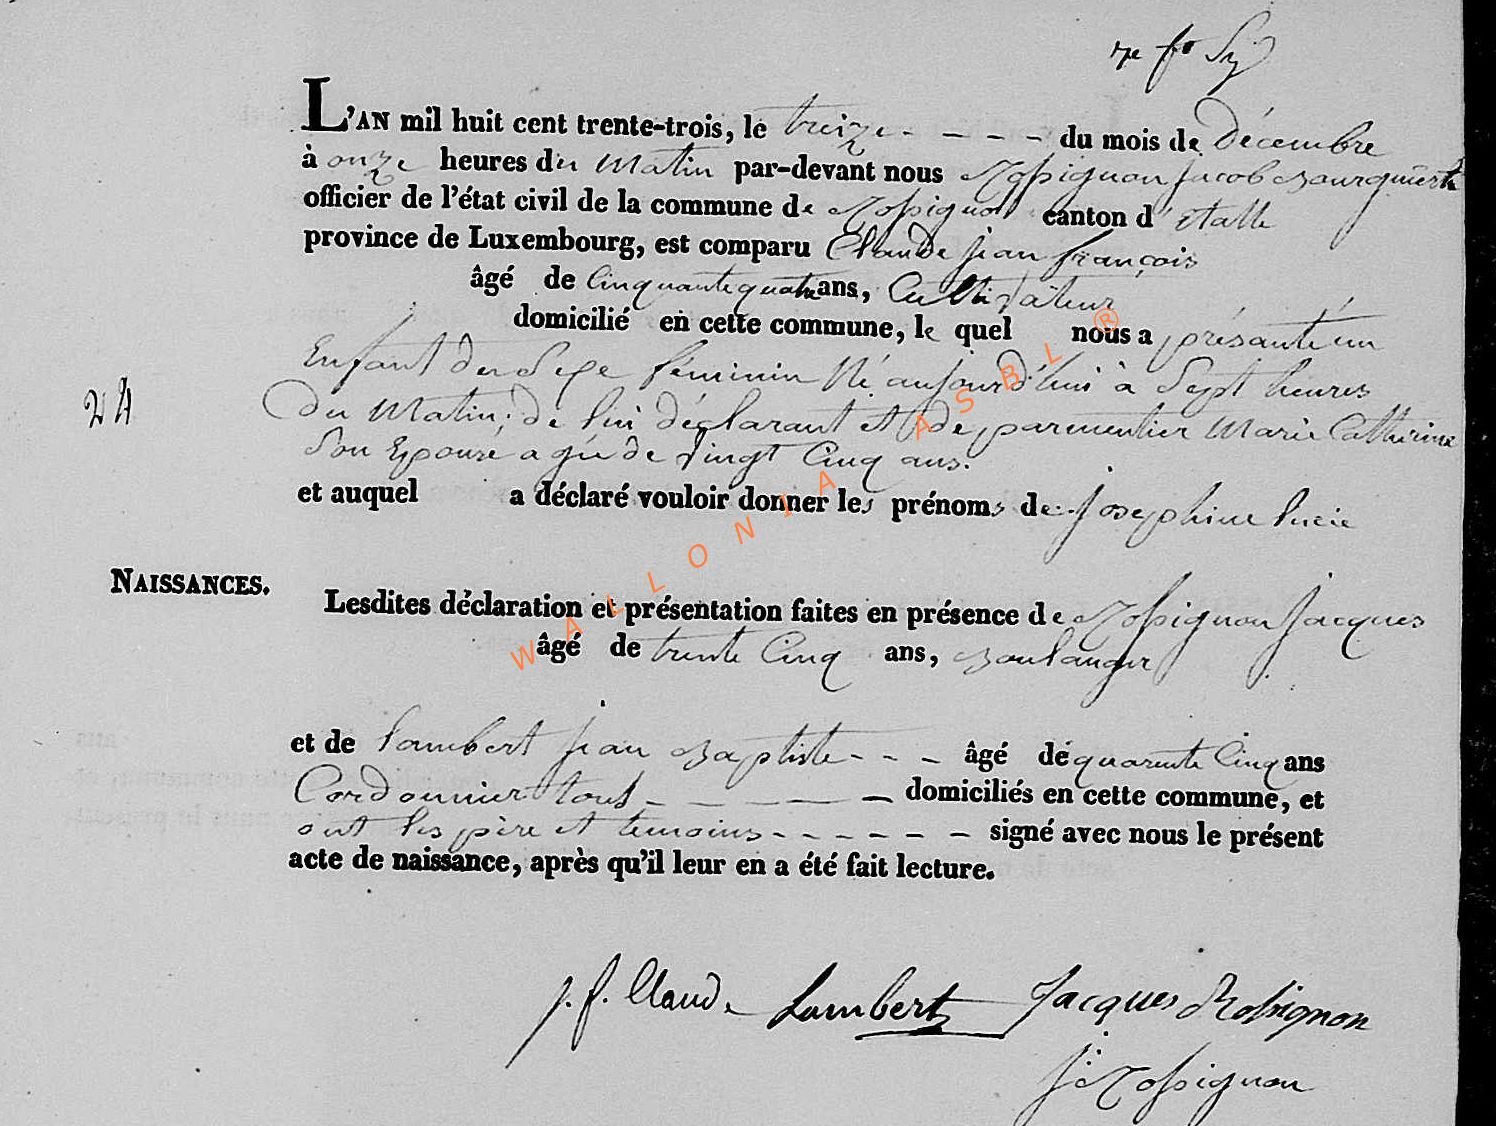 7e fo Sy
L'AN mil huit cent trente-trois, le treize - - - - du mois de Décembre
à onze heures du Matin par-devant nous Rossignon Jacob Bourguemestre
officier de l'état civil de la commune de Rossignol canton d'étalle
province de Luxembourg, est comparu Claude jean françois
âgé de Cinquante quatre ans, Cultivateur
domicilié en cette commune, le quel nous a présanté un
Enfant du Sexe féminin Né aujourd'hui à Sept heures
du Matin, de lui déclarant et de parmentier Marie Catherine
Son Epouse agée de vingt Cinq ans.
24
et auquel a déclaré vouloir donner les prénoms de Josephine lucie
NAISSANCES.
Lesdites déclaration et présentation faites en présence de Rossignon Jacques
âgé de trente Cinq ans, Boulanger
et de lambert jean Baptiste - - - âgé de quarente Cinq ans
Cordonnier tous - - - - domiciliés en cette commune, et
ont les père et temoins - - - - - - signé avec nous le présent
acte de naissance, après qu'il leur en a été fait lecture.
j. f. Claude Lambert Jacques Rossignon
J: Rossignon
WALLONIA ASBL ®